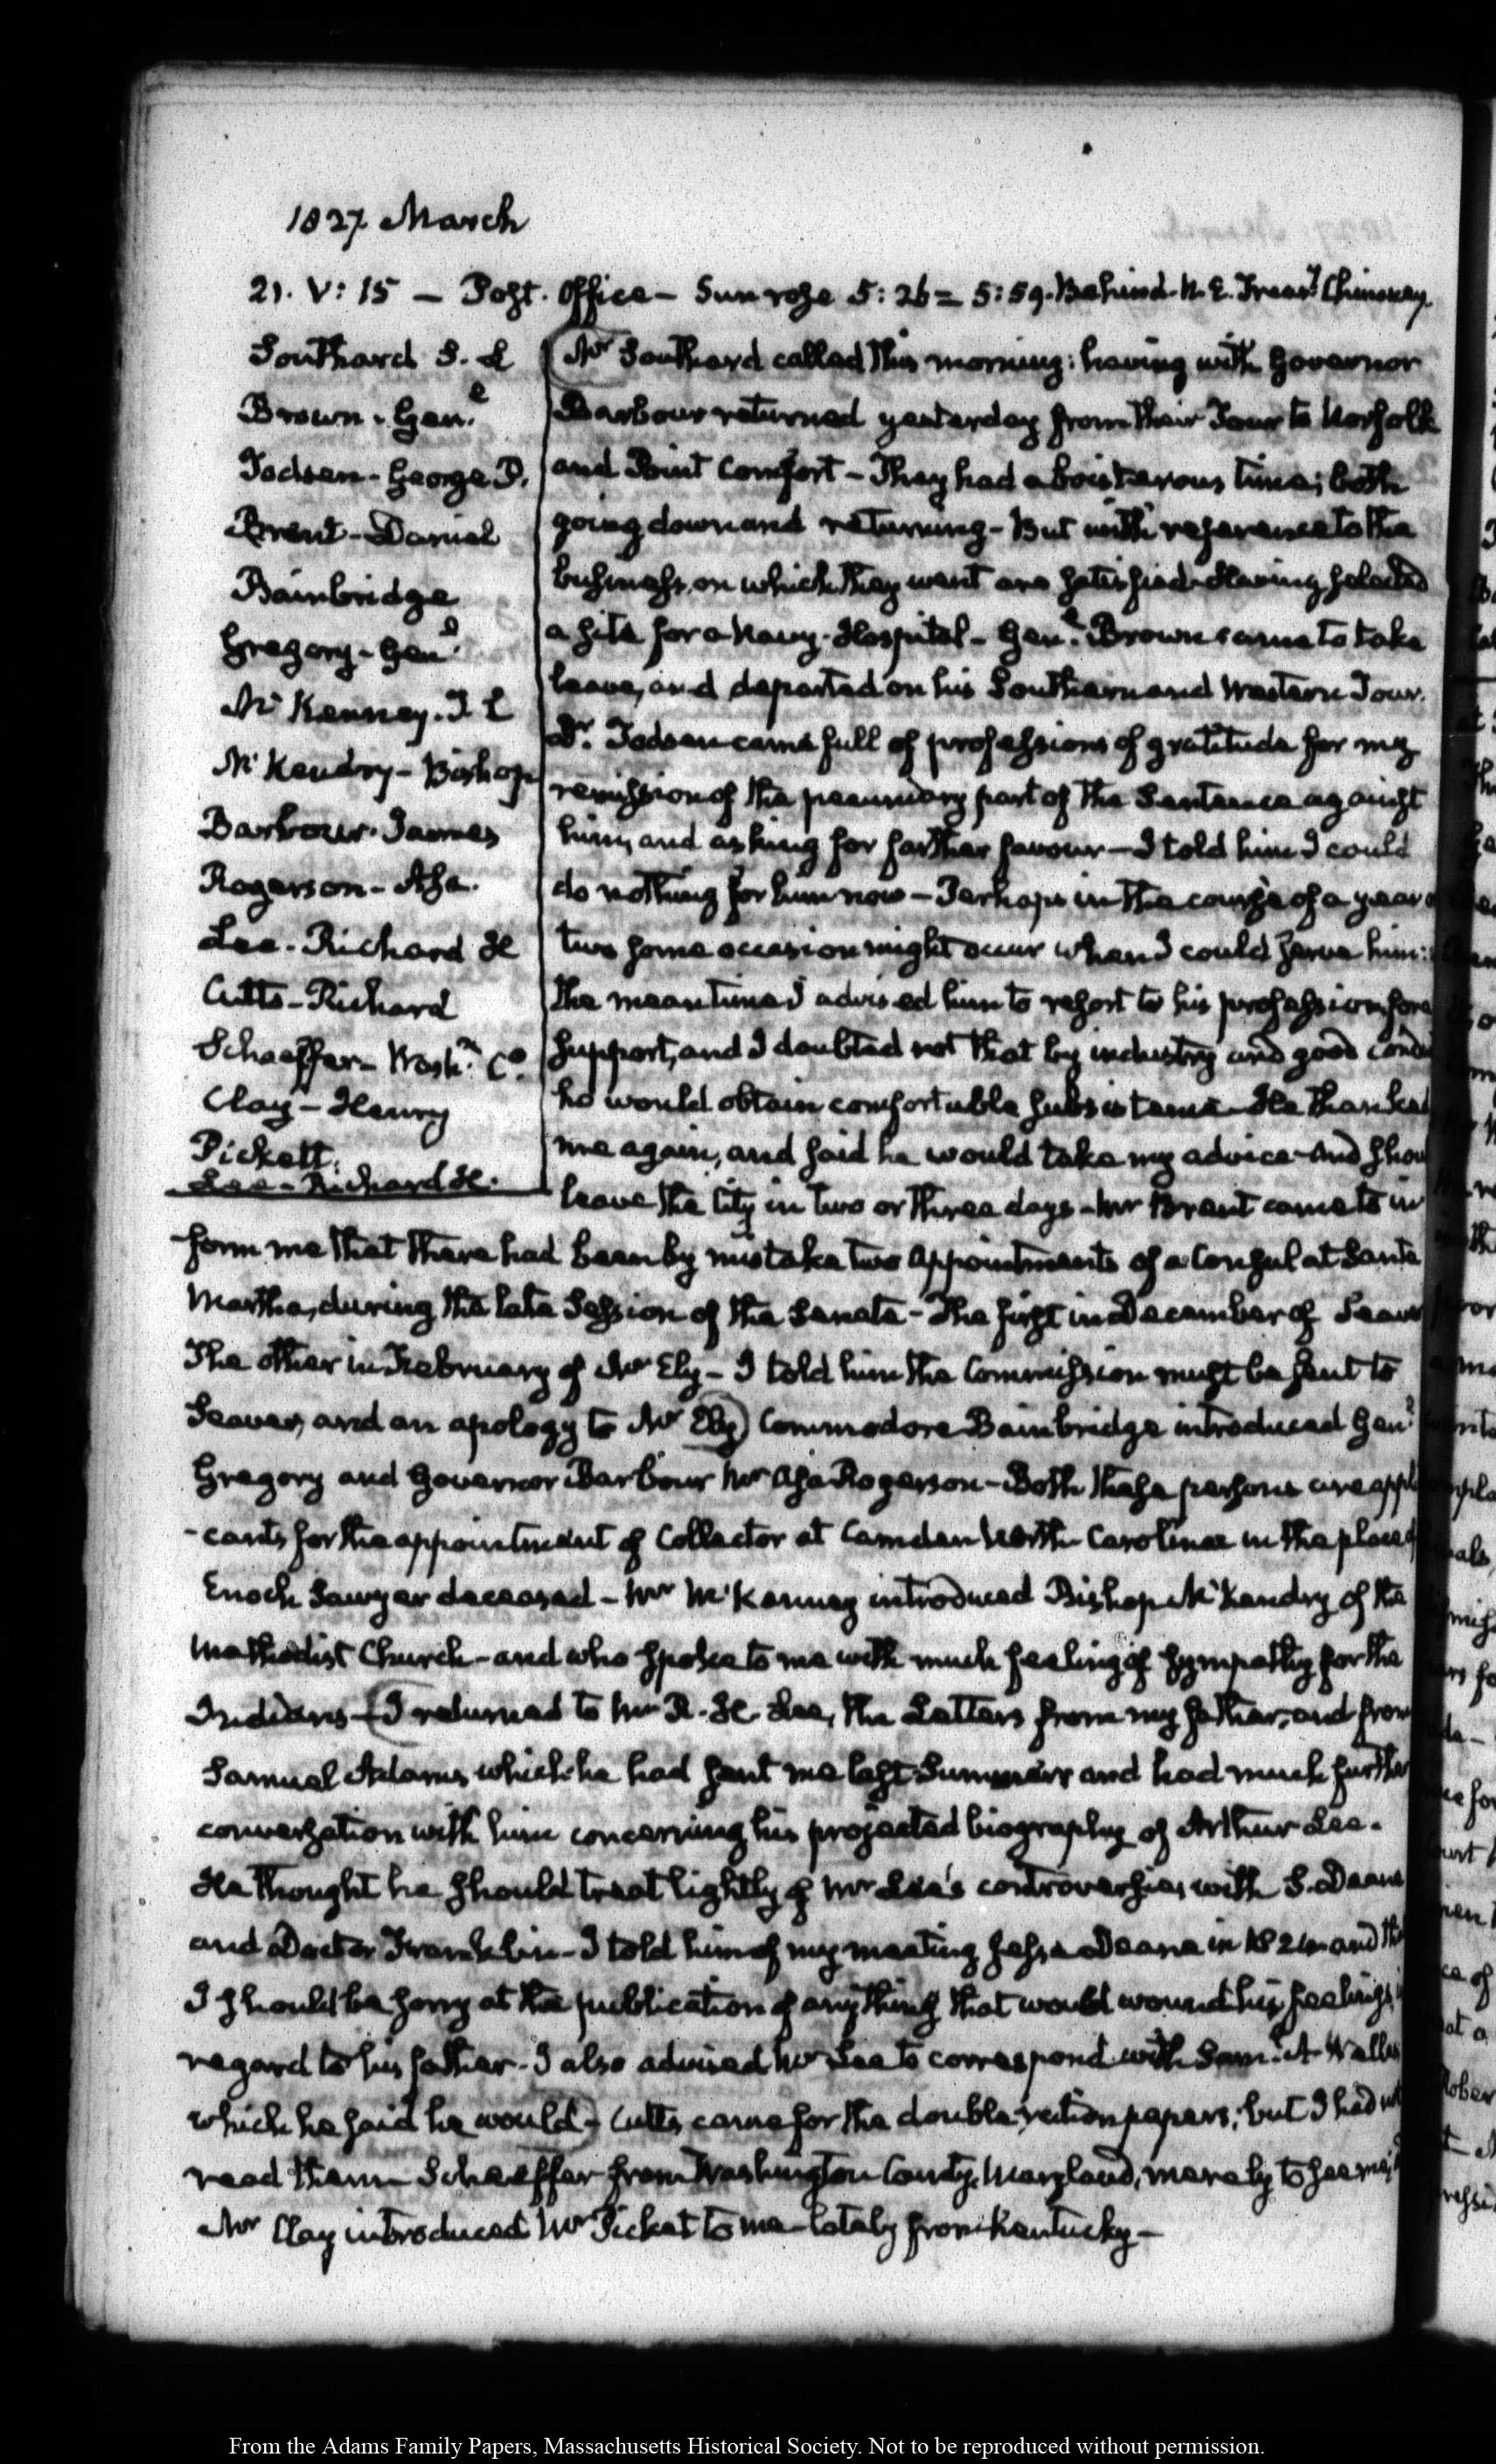 1827. March
21. V: 15 — Post. Office — Sun rose 5: 26 = 5: 59. Behind. N. E. Treasy. Chimney.
Southard S. L
Brown - Genl.
Todsen - George P.
Brent - Daniel
Bainbridge
Gregory - Genl.
McKenney. T. L
McKendry - Bishop
Barbour. James
Rogerson - Asa.
Lee - Richard H
Cutts - Richard
Schaeffer - Washn. Co.
Clay - Henry
Pickett.
Lee - Richard H.
Mr Southard called this morning: having with Governor
Barbour returned yesterday from their Tour to Norfolk
and Point Comfort — They had a boisterous time; both
going down and returning - But with reference to the
business, on which they went are satisfied. Having selected
a site for a Navy. Hospital - Genl. Brown came to take
leave, and departed on his Southern and Western Tour.
Dr. Todsen came full of professions of gratitude for my
remission of the pecuniary part of the Sentence against
him, and asking for farther favour — I told him I could
do nothing for him now — Perhaps in the course of a year o
two some occasion might occur when I could serve him:
the mean time I advised him to resort to his profession for
support, and I doubted not that by industry and good cond
he would obtain comfortable subsistence - He thanked
me again, and said he would take my advice - and shou
leave the City in two or three days - Mr Brent came to in
form me that there had been by mistake two appointments of a Consul at Santa
Martha, during the late Session of the Senate - The first in December of Seaver
The other in February of Mr Ely - I told him the Commission must be sent to
Seaver, and an apology to Mr Ely) Commodore Bainbridge introduced Genl.
Gregory and Governor Barbour Mr Asa Rogerson - Both these persons are appli
-cants for the appointment of Collector at Camden North-Carolina in the place of
Enoch Sawyer deceased - Mr McKenney introduced Bishop McKendry of the
Methodist Church - and who spoke to me with much feeling of sympathy for the
Indians - (I returned to Mr R. H. Lee, the Letters from my father, and from
Samuel Adams which he had sent me last Summer and had much further
conversation with him concerning his projected biography of Arthur Lee.
He thought he should treat lightly of Mr Lee's controversies with S. Deane
and Doctor Franklin - I told him of my meeting Jesse Deane in 1824 and th
I should be sorry at the publication of any thing that would wound his feelings i
regard to his father. I also advised Mr Lee to correspond with Saml. A Wells
which he said he would) - Cutts came for the double ration papers, but I had not
read them - Schaeffer from Washington County, Maryland, merely to see me
Mr Clay introduced Mr Picket to me - lately from Kentucky —
From the Adams Family Papers, Massachusetts Historical Society. Not to be reproduced without permission.